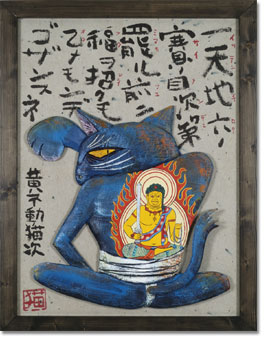 一天地六ノ
賽ノ目次第
罷ル前ニ
福ヲ招クモ
乙ナモンデ
ゴザンスネ
黄不動猫次
猫